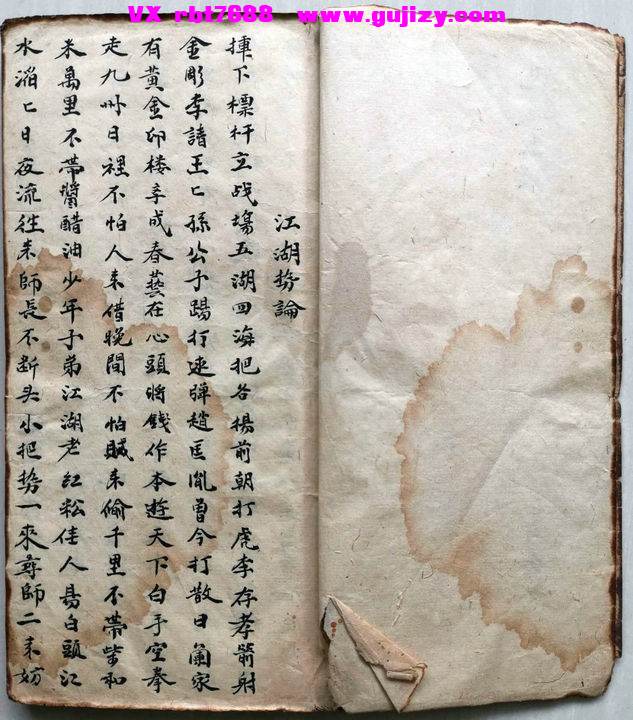 VX rbt7688 www.gujizy.com
江湖势論
揮下標杆立战場五湖四海把名揚前朝打虎李存孝箭射
金彫李諸王匕孫公子踢打速弹趙匡胤曾今打散日蘭家
有黃金卬楼季成春藝在心頭將錢作本遊天下白手空拳
走九州日裡不怕人来借晚間不怕賊来偷千里不帶柴和
米萬里不帶醬醋油少年子弟江湖老红粉佳人昜白頭江
水滔匕日夜流往来師長不断头小把势一來尊師二来妨